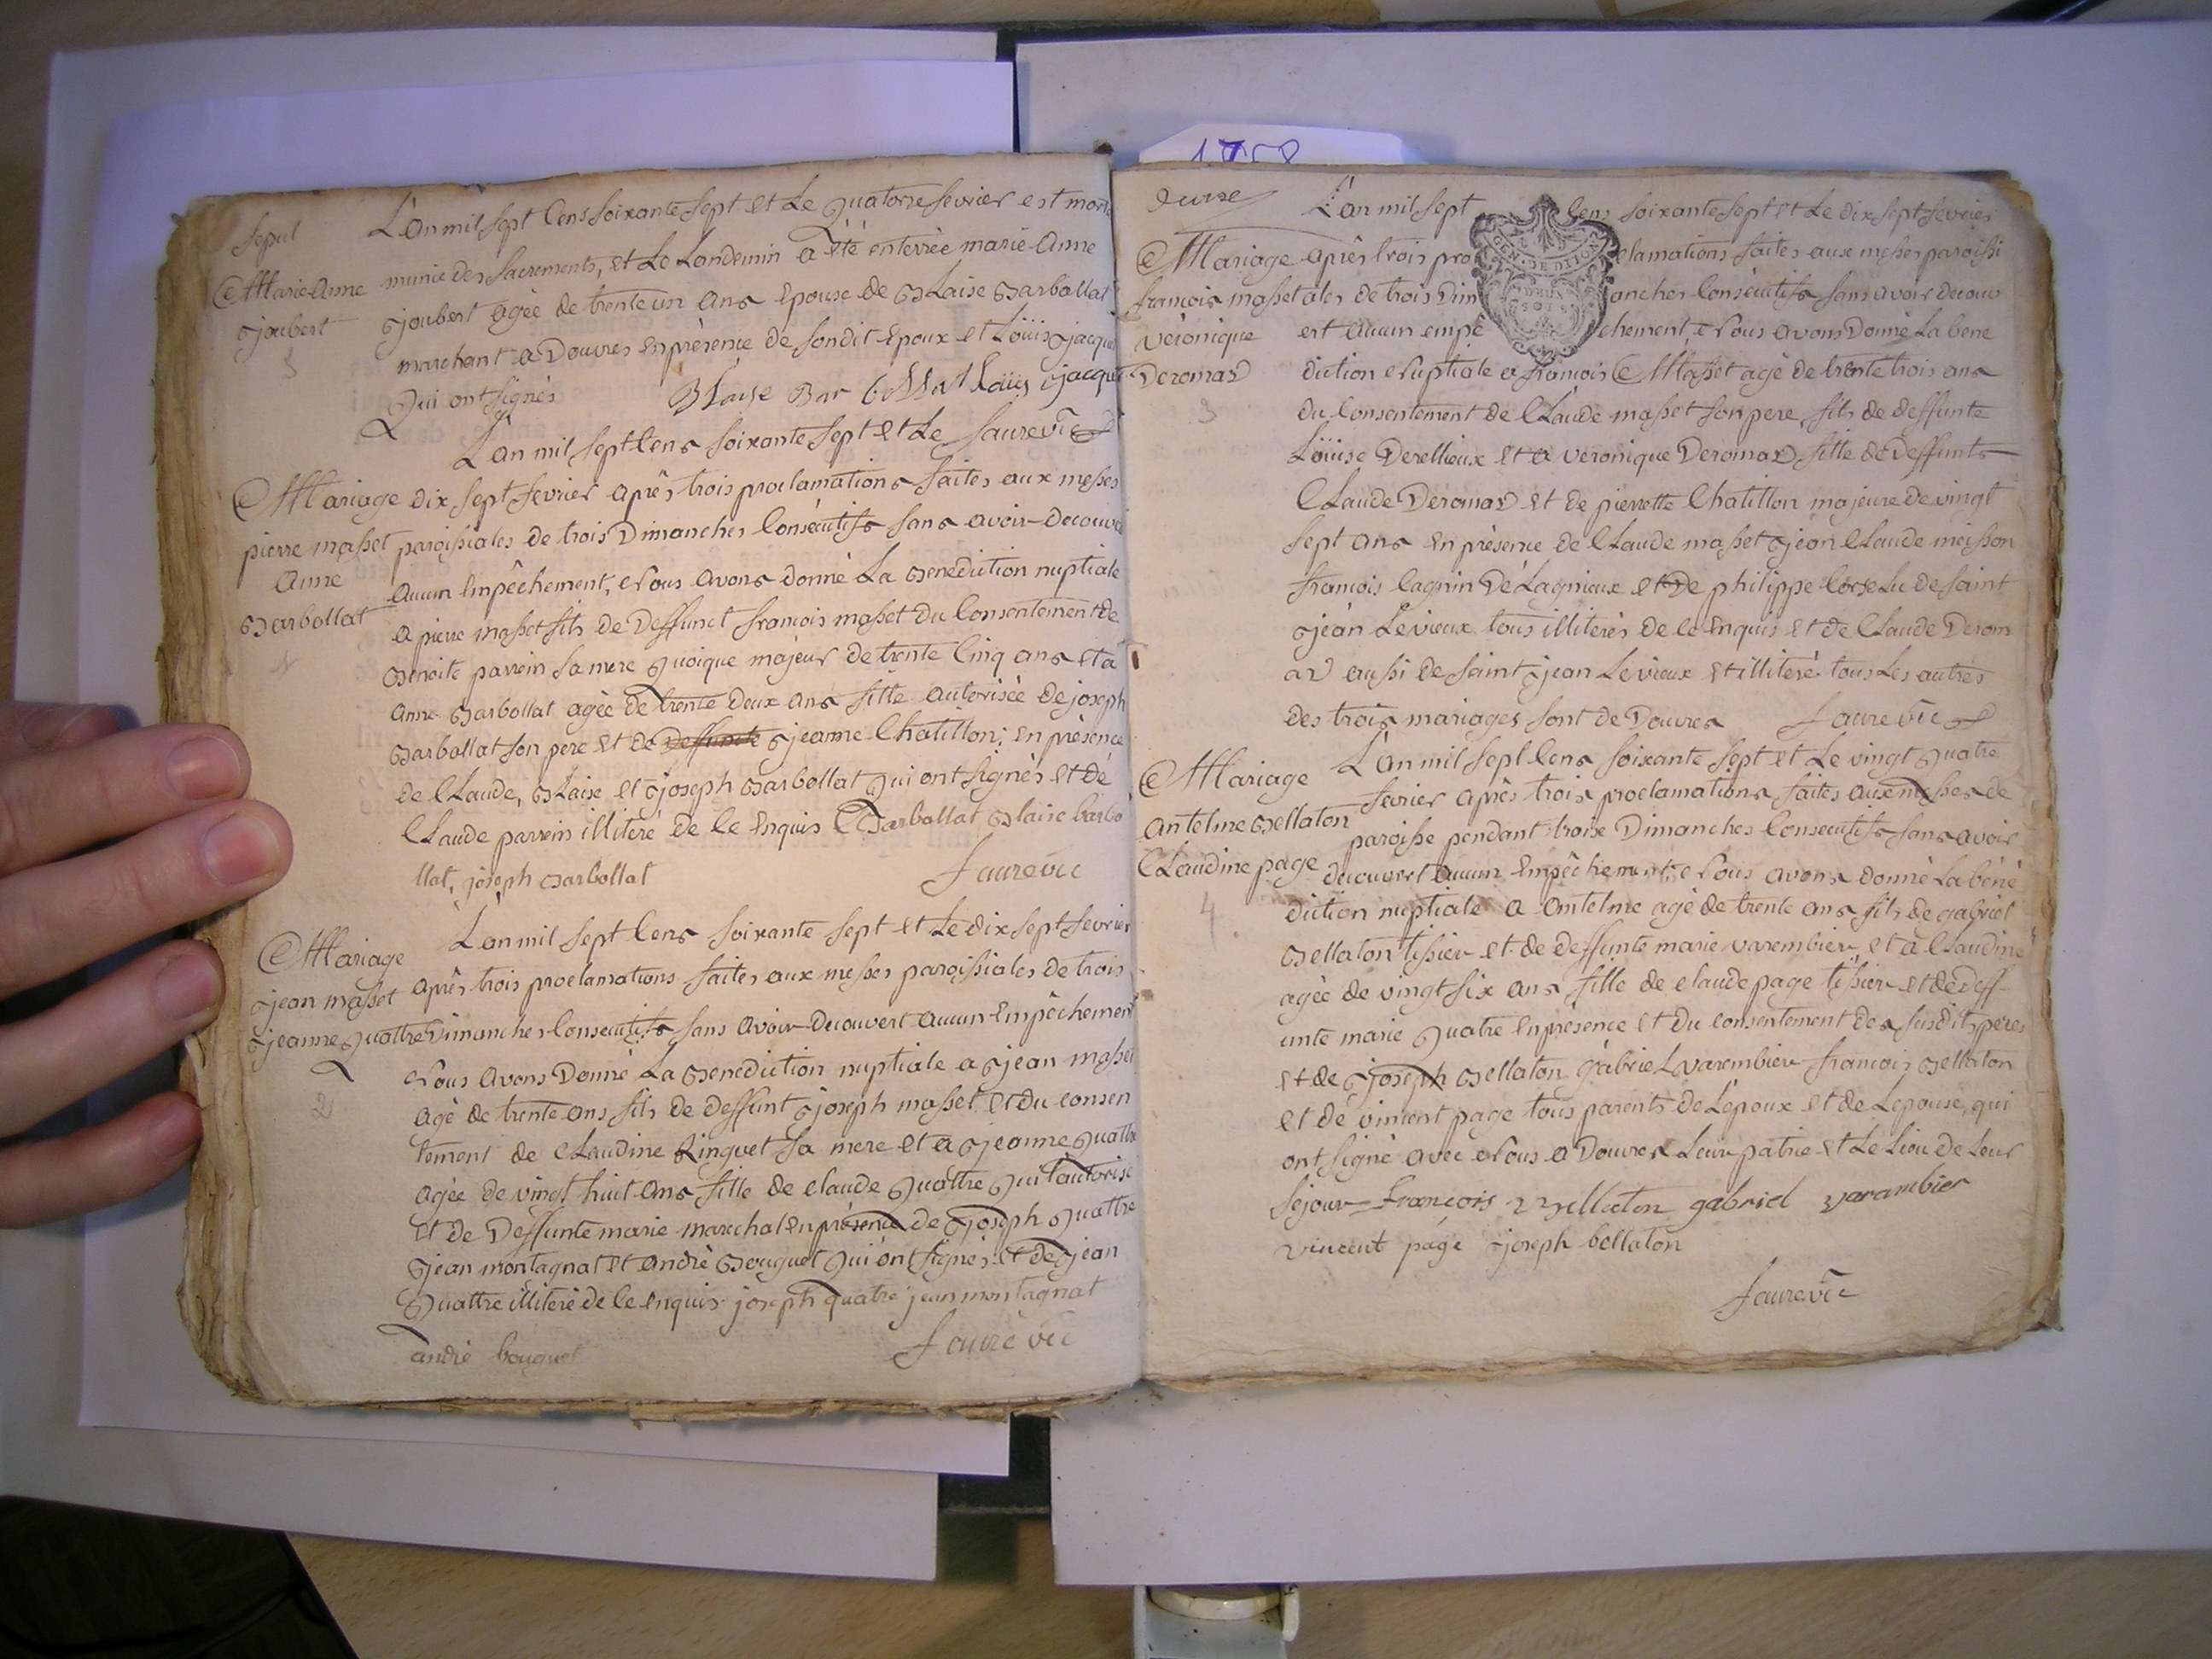 1758
Sepul
Marie Anne
joubert
3
L'an mil sept cens soixante sept et Le quatorze fevrier est morte
munie des sacrements, et Le Landemin a été enterrée marie Anne
joubert agée de trente un ans Epouse de Blaise Barbollat
marchant a Douvres En présence de sondit Epoux et Loüis jacquet
qui ont signés Blaise Bar bollat Loüis jacquet
L'an mil sept cens soixante sept et Le faure vic
Mariage
pierre masset
Anne
Barbollat
1
dix sept fevrier après trois proclamations faites aux messes
paroissiales de trois Dimanches consécutifs sans avoir decouvert
Aucun Empêchement, Nous avons donné La Benediction nuptiale
a pierre masset fils de Deffunct francois masset du consentement de
Benoite parrein sa mere quoique majeur de trente cinq ans et a
Anne Barbollat agée de trente deux ans fille autorisée de joseph
Barbollat son pere et de deffuncte jeanne chatillon; en présence
de claude, Blaise et joseph Barbollat qui ont signés et de
claude parrein illiteré de ce Enquis C Barbollat Blaise barbo
llat, joseph Barbollat faure vic
Mariage
jean masset
jeanne quattre
2
L'an mil sept cens soixante sept et Le dix sept fevrier
après trois proclamations faites aux messes paroissiales de trois
Dimanches consecutifs sans avoir decouvert aucun Empêchement
Nous avons Donné La Benediction nuptiale a jean masset
agé de trente ans fils de deffunt joseph masset et du consen
tement de claudine Ringuet sa mere et a jeanne quattre
agée de vingt huit ans fille de claude quattre qui l'autorise
et de Deffunte marie marechal en présence de joseph quattre
jean montagnat et andré Bouguet qui ont signés et de jean
quattre illiteré de ce Enquis joseph quatre jean montagnat
andré bouguet faure vic
Mariage
francois masset
véronique
Deromas
3
L'an mil sept cens soixante sept et Le dix sept fevrier
après trois proclamations faites aux messes paroissi
ales de trois Dimanches consécutifs sans avoir decouv
GEN. DE DIJON
DEUX SOLS
ert aucun empêchement, Nous avons Donné La bene
diction Nuptiale a francois Masset agé de trente trois ans
du consentement de Claude masset son pere, fils de deffunte
Loüise Derellieux et a veronique Deromas fille de deffunts
Claude Deromas et de pierrette Chatillon majeure de vingt
sept ans en présence de Claude masset jean claude meisson
francois cagnin de Lagnieux et de philippe de saint
jean Levieux tous illiterés de ce enquis et de Claude Derom
as aussi de saint jean Levieux et illiteré tous Les autres
des trois mariages sont de Douvres faure vic
Mariage
Antelme Bellaton
Claudine page
4
L'an mil sept cens soixante sept et Le vingt quatre
fevrier après trois proclamations faites aux messes de
paroisse pendant trois Dimanches consecutifs sans avoir
decouvert aucun Empêchement, Nous avons donné La béné
diction nuptiale a Antelme agé de trente ans fils de gabriel
Bellaton tissier et de deffunte marie varembier et a Claudine
agée de vingt six ans fille de claude page tissier et de deff-
unte marie quatre en présence et du consentement des susdits peres
et de joseph Bellaton gabriel varembier francois Bellaton
et de vincent page tous parents de L'epoux et de Lepouse, qui
ont signé avec Nous a Douvres Leur patrie et Le Lieu de Leur
sejour francois Bellaton gabriel varambier
vincent page joseph bellaton
faure vic